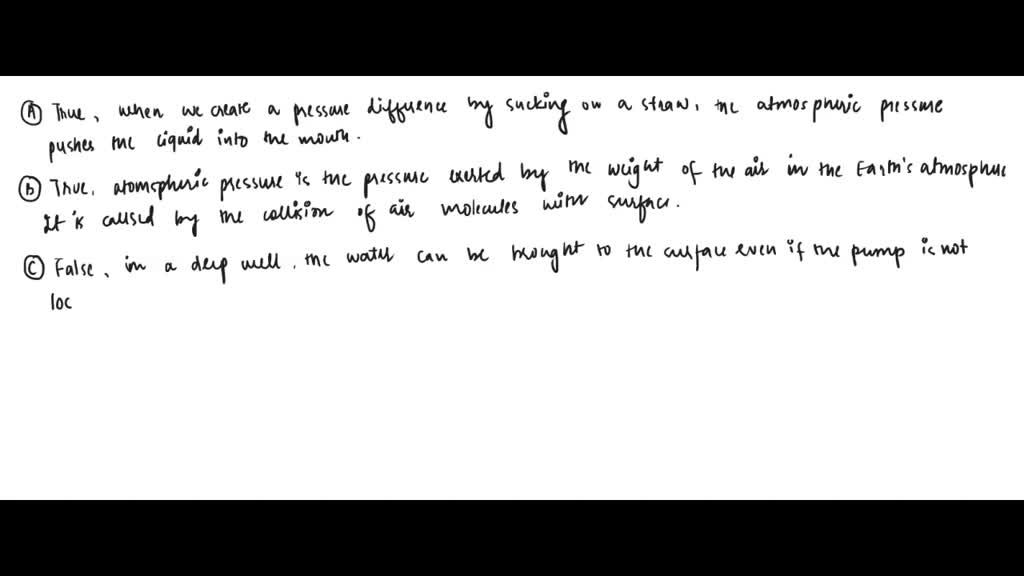 Ⓐ True, when we create a pressure difference by sucking on a straw, the atmospheric pressure
pushes the liquid into the mouth.
ⓑ True, atomspheric pressure is the pressure exerted by the weight of the air in the Earth's atmosphere
It is caused by the collision of air molecules with surface.
Ⓒ False, in a deep well, the water can be brought to the surface even if the pump is not
loc